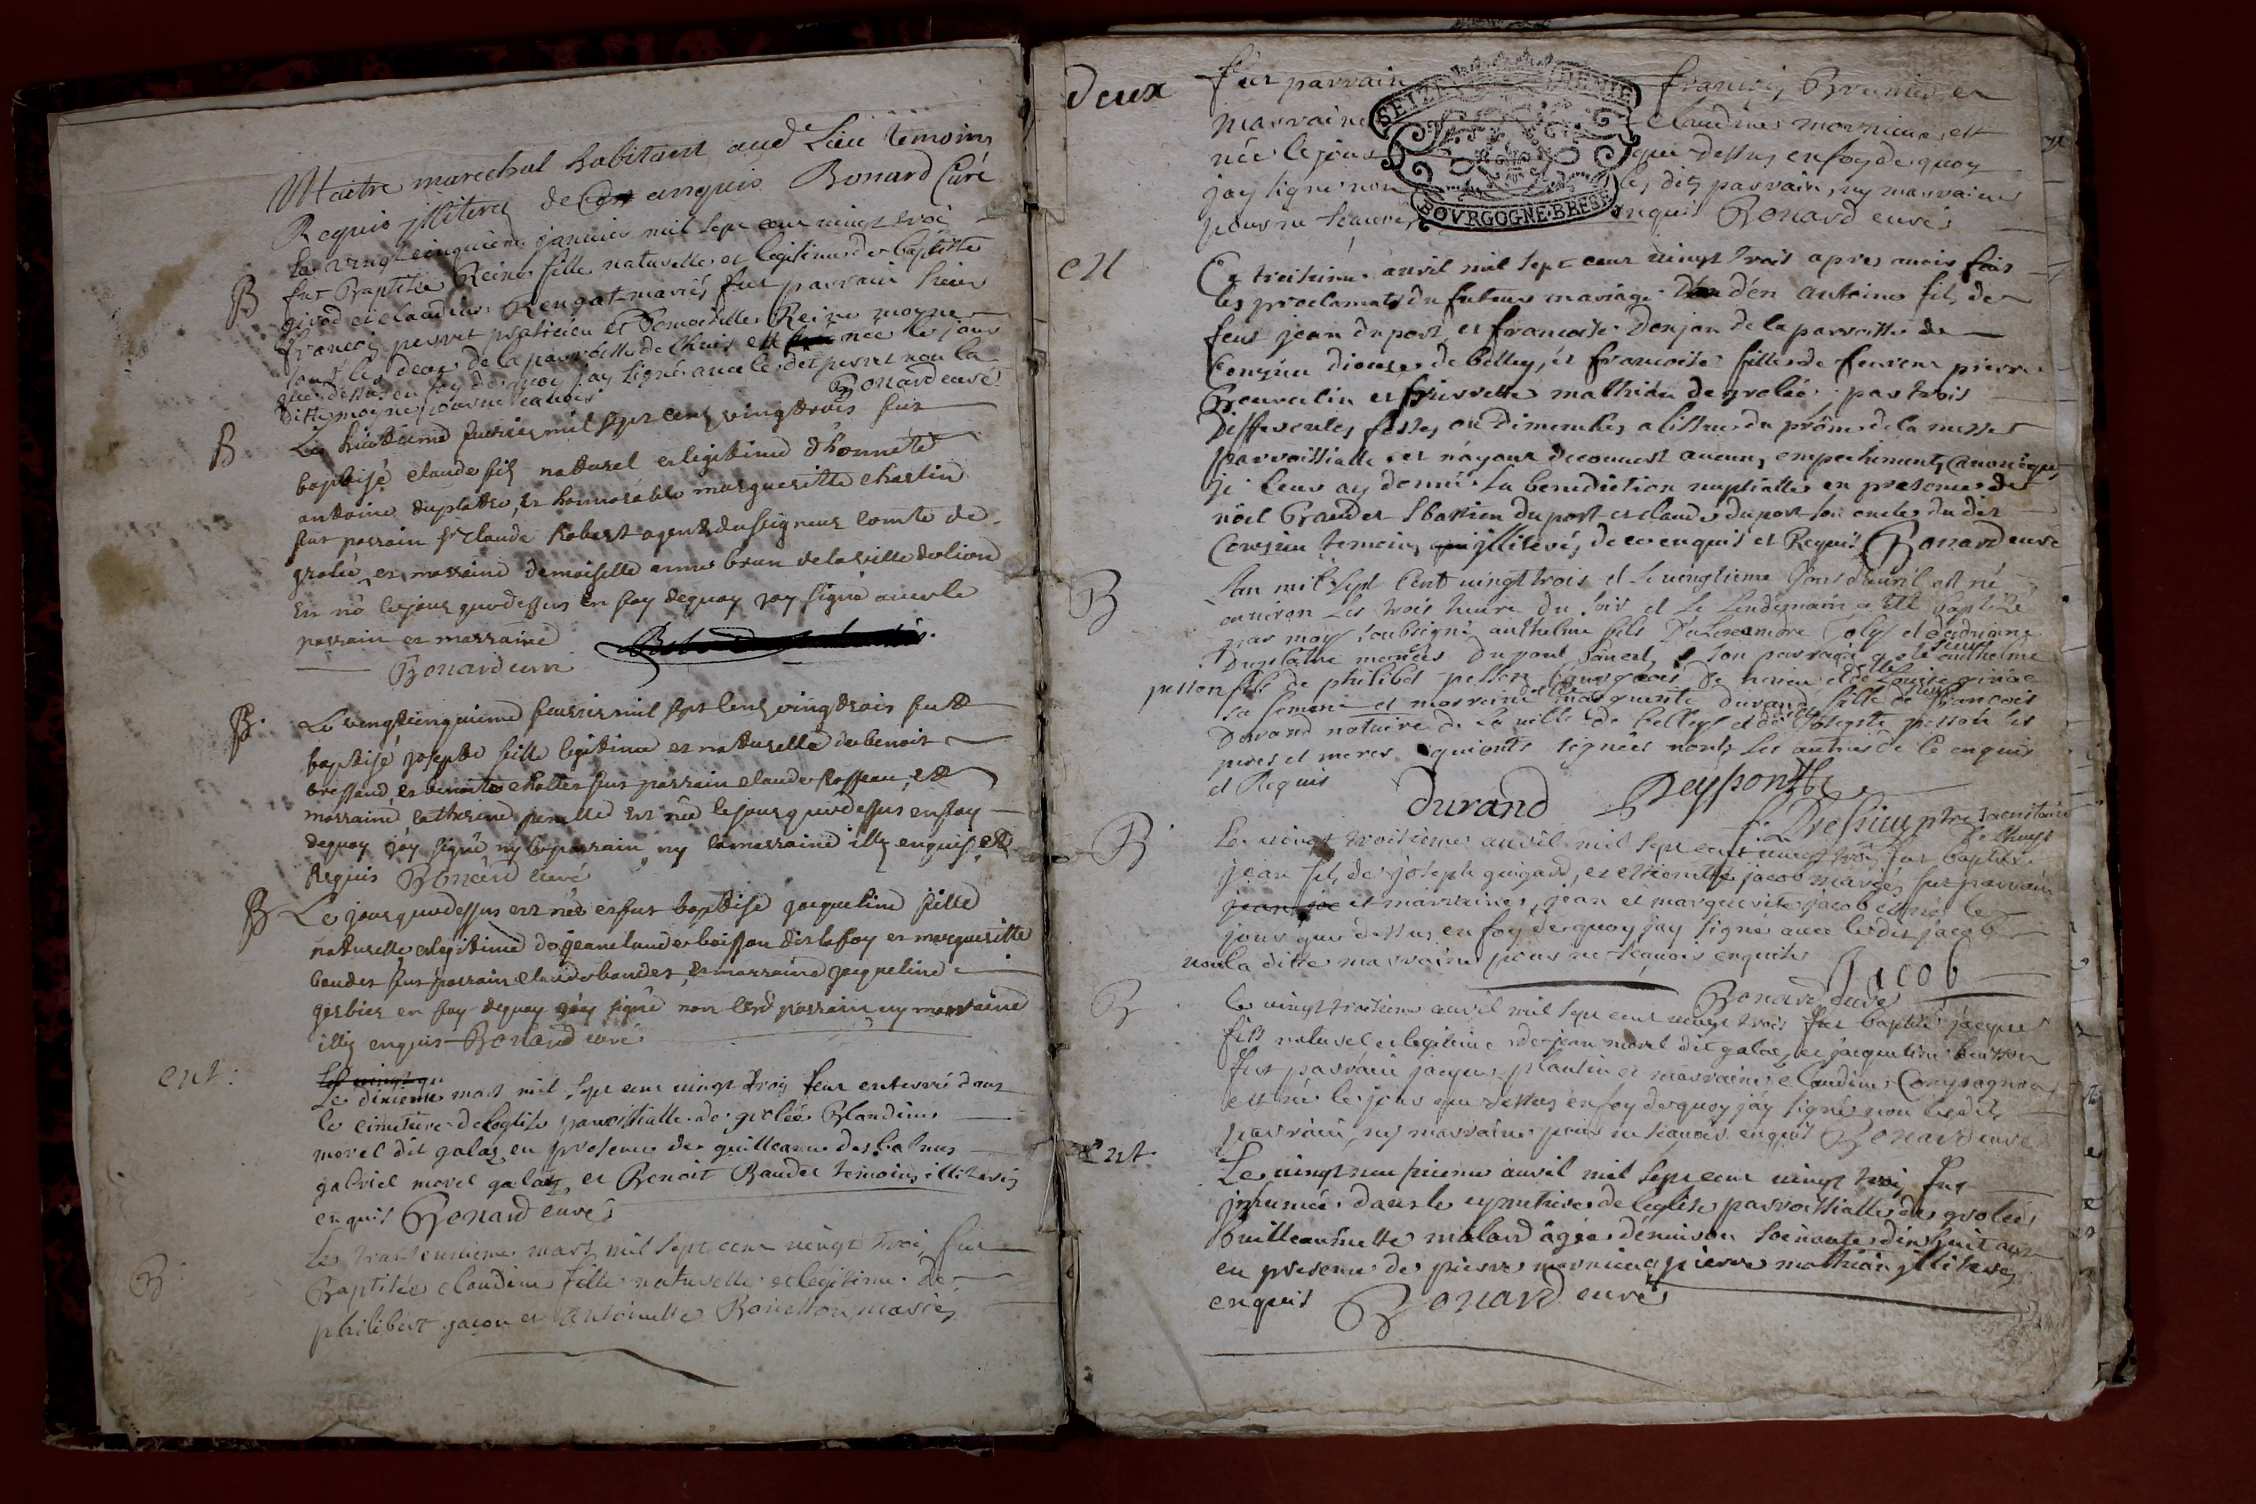 Maitre marechal habitant aud Lieu temoins
Requis illiterez de ce enquis Bonard Curé
B
Le vingtcinquieme janvier mil sept cens vingt troi
fut Baptisée Reine fille naturelle et legitime de baptiste
girod et claudine Rengat mariés fut parrain sieur
francois perret praticien et Demoiselle Reine moyne
tous les deux de la parroisse de est née le jour
que dessus en foy de quoy jay signé avec ledit perret non la
ditte moyne pour ne scavoir Bonard curé
B
Le huitieme fevrier mil sept cens vingt trois fut
baptisé claude fils naturel et legitime d'honnete
antoine duplatre, et honnorable margueritte charlin
fut parrain sr claude Robert agent du seigneur comte de
grolée et marraine demoiselle anne brun de la ville de lion
est né le jour que dessus en foy de quoy jay signé avec le
parrain et marraine
Bonard curé
B.
Le vingtcinquieme fevrier mil sept cens vingt trois fut
baptisé josepte fille legitime et naturelle de benoit
bressand, et benoite chollet fut parrain claude et
marraine catherine est née le jour que dessus en foy
de quoy j'ay signé ny le parrain ny la marraine illz enquis et
Requis Bonard curé
B
Le jour que dessus est née et fut baptisé jacqueline fille
naturelle et legitime de jean claude boisson dit laffoy et margueritte
baudet fut parrain claude baudet, et marraine jacqueline
gerbier en foy de quoy j'ay signé non led parrain ny marraine
illz enquis Bonard curé
ent:
Le vingt qu
Le dixieme mars mil sept cens vingt trois feut enterré dans
le cimetiere de leglise parroissialle de grolée Blandine
morel dit galaz en presence de guilleaume des balmes
gabriel morel galaz et Benoit Baudet temoins illiterés
enquis Bonard curé
B.
Le trenteunieme mars mil sept cens vingt troi fut
Baptisée claudine fille naturelle et legitime de
philibert gacon et Antoinette Bonesson mariés
deux
fut parrain francois Brunier et
marraine claudine mornieux est
née le jour que dessus en foy de quoy
jay signé non les dits parrain, ny marraine
pour ne scavoir enquis Bonard curé
SEIZE DENIE
BOVRGOGNE·BRESSE
Ce treisieme avril mil sept cens vingt trois apres avoir fait
les proclamats du futeur mariage d'en antoine fils de
feus jean duport et francoise donjan de la parroisse de
Conzieu diocese de belley, et francoise fille de feu sieur pierre
Bourcelin et pierrette mathieu de grolée par trois
differentes festes ou dimenches a lissue du prône de la messe
parroissialle et n'ayant decouvert aucuns empechements canoniques
je leur ay donné la benediction nuptialle en presence de
noel Braudet Sbastien duport et claude duport son oncle dudit
Conzieu temoins illiterés, de ce enquis et Requis Bonard curé
B
Lan mil sept cent vingt trois et le vingtieme Jour d'avril est né
environ les trois heure du soir et le lendemain a été baptizé
par moy soubsigné anthelme fils d'alexandre Joly et d'adrianne
Duplatre mariés du pont Sainct, son parrain a été sieur anthelme
pesson fils de philibert pesson bourgeois de herieu et de delle Louise
sa femme et marraine delle marguerite durand fille de sieur francois
Durand notaire de la ville de belley et de delle Josepte pesson les
peres et meres qui onts signées nonts les autres de ce enquis
et Requis
durand Peysson
pbre Sacristain
B
Le vingt troisieme avril mil sept cent vingt trois fut baptisé
jean fils de joseph guigard, et ettiennette jacob mariés fut parrain
jean jac et marraine, jean et margueritte jacob est né le
jour que dessus en foy de quoy jay signé avec ledit jacob
non la ditte marraine pour ne scavoir enquits
Jacob
Bonard curé
B
Le vingttroisieme avril mil sept cent vingt trois fut baptisé jacques
fils naturel et legitime de jean morel dit galaz, et jacqueline buisson
fut parrain jacques plantin et marraine claudine Compagnon
est né le jour que dessus en foy de quoy jay signé non lesdits
parrain, ny marraine pour ne scavoir enquis Bonard curé
Ent.
Le vingt neufvieme avril mil sept cent vingt trois fut
inhumée dans le cymetiere de leglise parroissialle de grolée
Guilleaumette molard agée denviron soixante dixhuit ans
en presence de pierre mornieux pierre mathieu illiterés
enquis Bonard curé